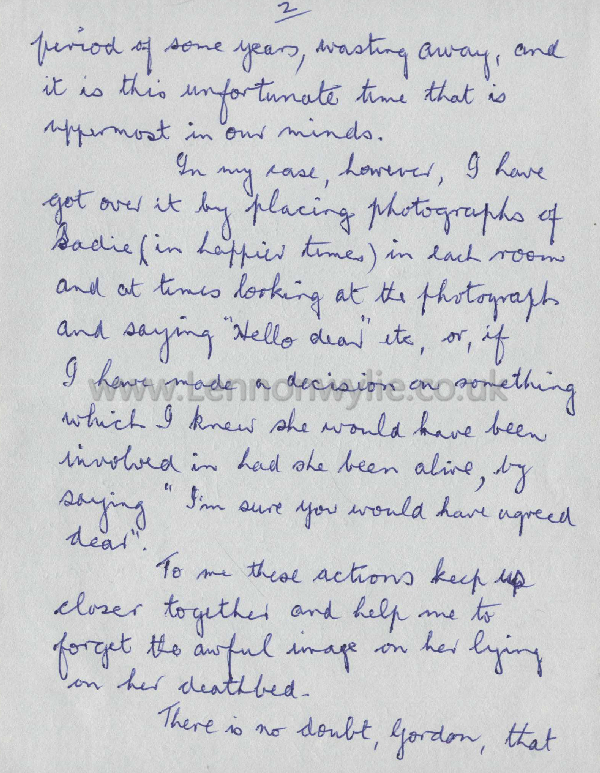 2
period of some years, wasting away, and
it is this unfortunate time that is
uppermost in our minds.
In my case, however, I have
got over it by placing photographs of
Sadie (in happier times) in each room
and at times looking at the photograph
and saying "Hello dear" etc, or, if
I have made a decision on something
www.Lennonwylie.co.uk
which I knew she would have been
involved in had she been alive, by
saying " I'm sure you would have agreed
dear".
To me these actions keep us
closer together and help me to
forget the awful image on her lying
on her deathbed.
There is no doubt, Gordon, that